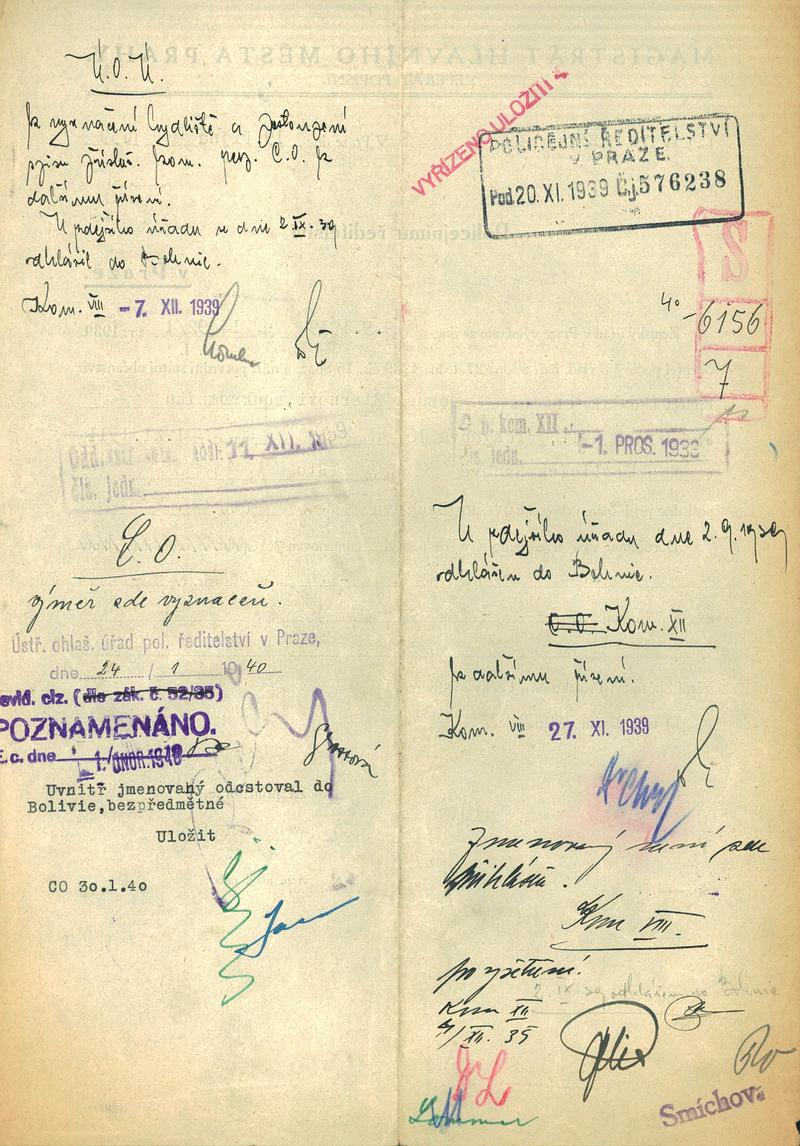 Ú.O.Ú.
K vyznačení bydliště a
spisu přísluš. kom. C.O. k
dalšímu řízení.
U zdejšího úřadu se dne 2 IX. 39
odhlásil do Bolivie.
Kom. VIII -7. XII. 1939
11. XII. 1939
čís. jedn.
C. O.
výměr zde vyznačen.
Ústř. ohlaš. úřad pol. ředitelství v Praze,
dne 24 / 1 1940
evid. ciz. (dle zák. č. 52/35)
POZNAMENÁNO.
E.c. dne 1. ÚNOR. 1940
Uvnitř jmenovaný odcestoval do
Bolivie,bezpředmětné
Uložit
CO 30.1.40
VYŘÍZENO ULOŽIT!
POLICEJNÍ ŘEDITELSTVÍ
V PRAZE.
Pod 20. XI. 1939 Čj. 576238
S
40 -6156
7
kom. XII
jedn. -1. PROS. 1939
U zdejšího úřadu dne 2. 9. 1939
odhlášen do Bolivie.
C.O. Kom. XII
K dalšímu řízení.
Kom. VIII 27. XI. 1939
Jmenovaný není zde
přihlášen.
Kom VIII.
po zjištění.
2. IX odhlášen do Bolivie
Kom XII
4/XII. 39
Smíchov